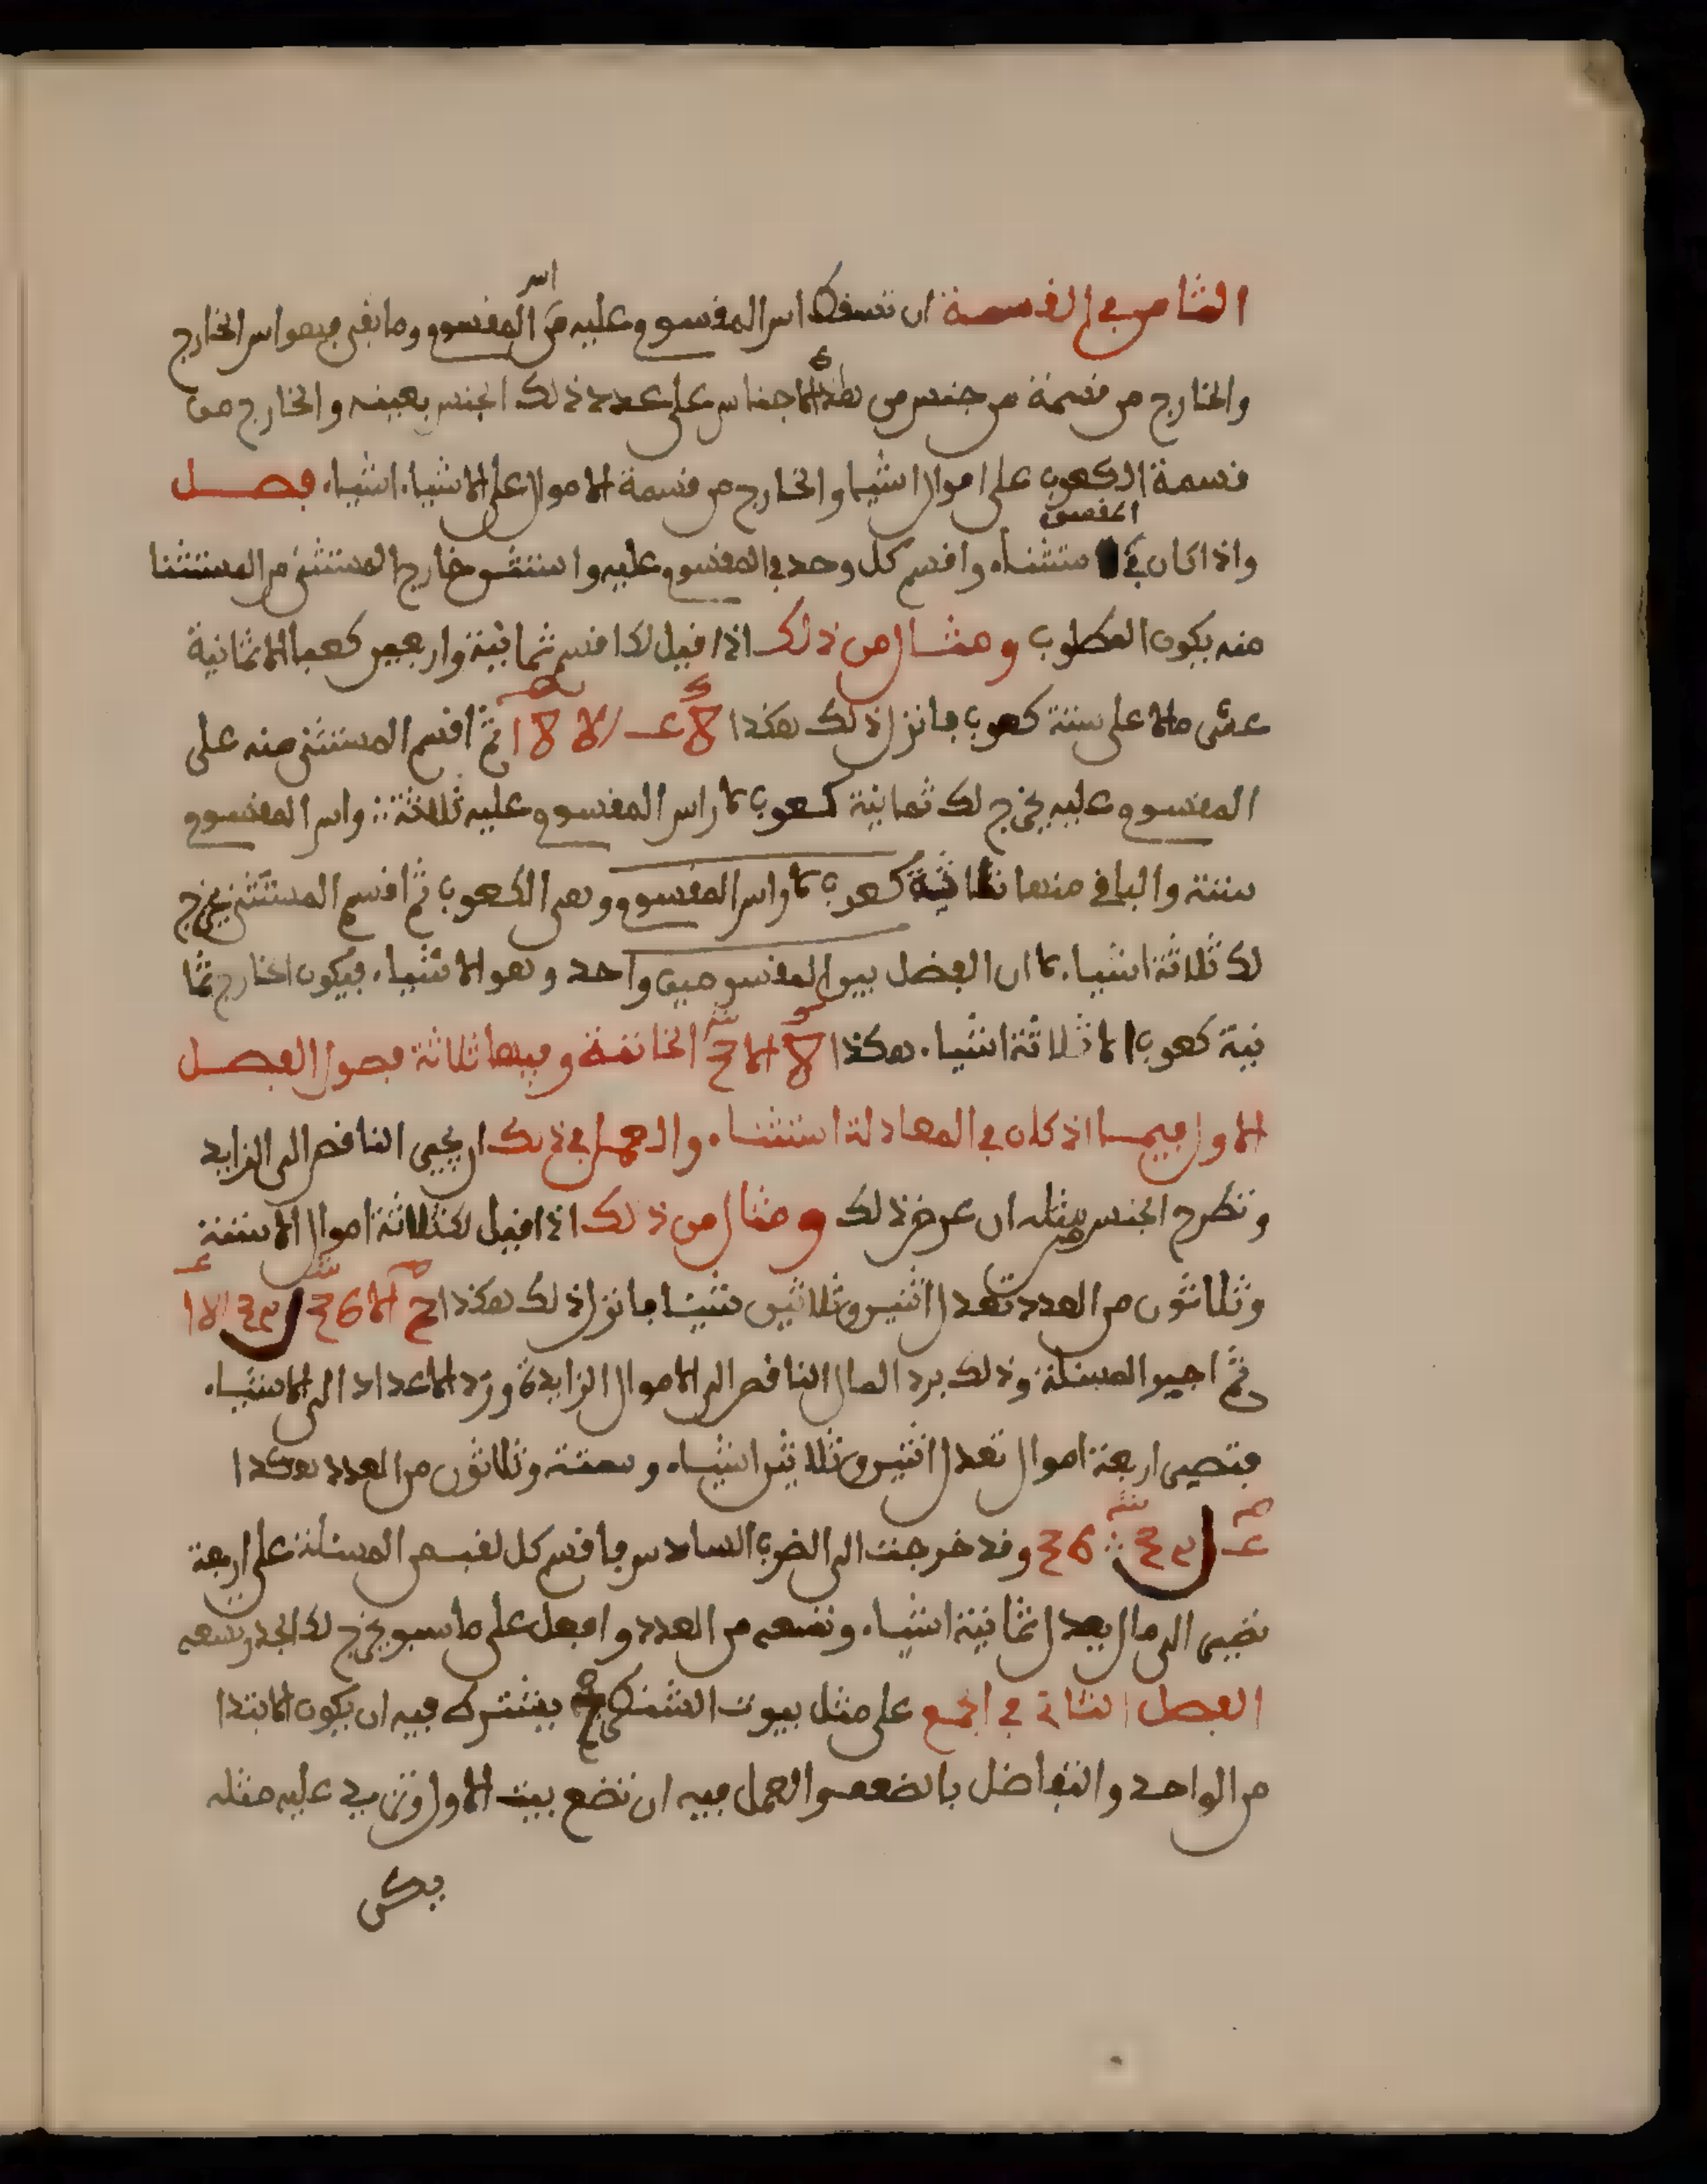 الثامن في القسمة ان تسقط اس المقسوم عليه من اس المقسوم وما بقي فهو اس الخارج
والخارج من قسمة من جنس من هذه الاجناس على عدد ذلك الجنس بعينه والخارج من
قسمة الكعوب على اموال اشيا والخارج من قسمة الاموال على الاشياء اشياء فصل
واذا كان في المقسوم استثناء وافسم كل وحد في المقسوم عليه واستثن خارج المستثنى من المستثنا
منه يكون المطلوب ومثال من ذلك اذا قيل لك اقسم ثمانية واربعين كعبا الا ثمانية
عشر مالا على ستة كعوب فانزل ذلك هكذا ثم اقسم المستثنى منه على
المقسوم عليه يخرج لك ثمانية كعوب لان اس المقسوم عليه ثلاثة واس المقسوم
ستة والباقي منها ثلاثة كعوب لان اس المقسوم وهي الكعوب ثم اقسم المستثنى يخرج
لك ثلاثة اشيا لان الفضل بين المقسومين واحد وهو الاشياء فيكون الخارج ثما
نية كعوب الا ثلاثة اشياء هكذا الخاتمة وفيها ثلاثة فصول الفصل
الاول فيما اذ كان في المعادلة استثناء والعمل في ذلك ان يجبر الناقص الى الزايد
وتطرح الجنس من مثله ان عرض ذلك ومثال من ذلك اذا قيل لك ثلاثة اموال الا ستة
وثلاثون من العدد تعدل اثنين وثلاثين شيئا فانزل ذلك هكذا
ثم اجبر المسئلة وذلك برد المال الناقص الى الاموال الزايدة ورد الاعداد الى الاشياء
فتصير اربعة اموال تعدل اثنين وثلاثين اشياء وستة وثلاثون من العدد هكذا
وقد خرجت الى الضرب السادس فاقسم كل لفب من المسئلة على اربعة
تصير الى مال يعدل ثمانية اشياء وتسعه من العدد وافعل على ما سبق يخرج لك الجذر تسعه
الفصل الثاني في الجمع على مثل بيوت الشطرنج يشترك فيه ان يكون الابتدا
من الواحد والتفاضل بالضعف والعمل فيه ان تضع بيت الاول وتزيد عليه مثله